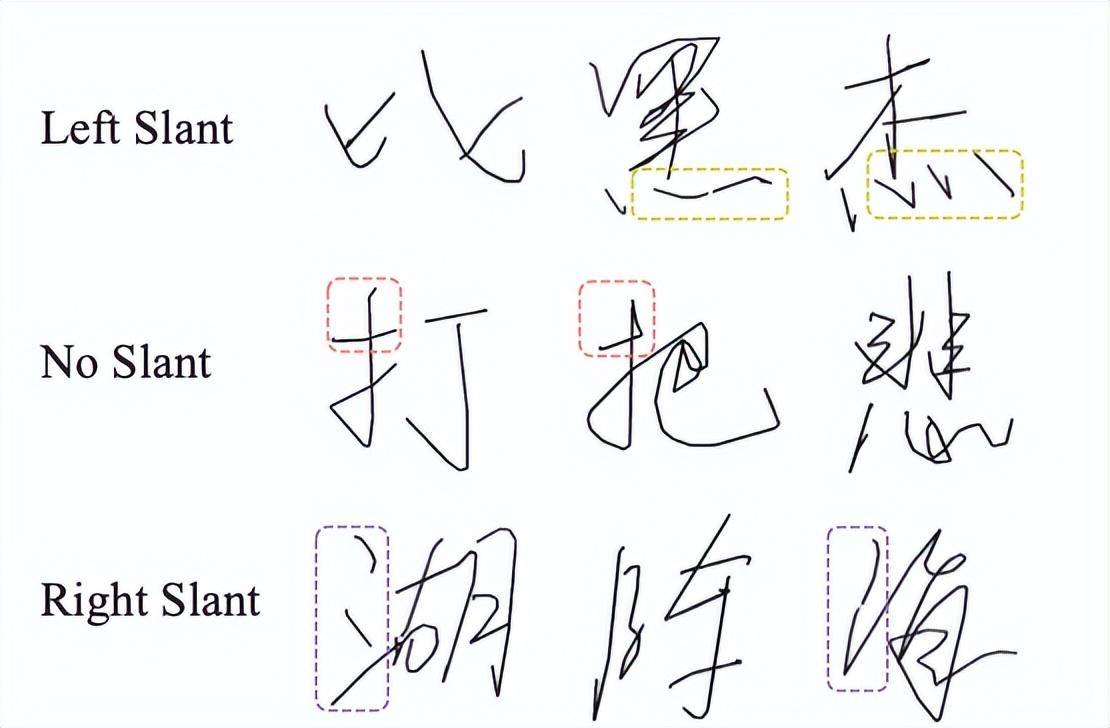 Left Slant 比 黑 杰
No Slant 打 把 悲
Right Slant 湖 阵 海